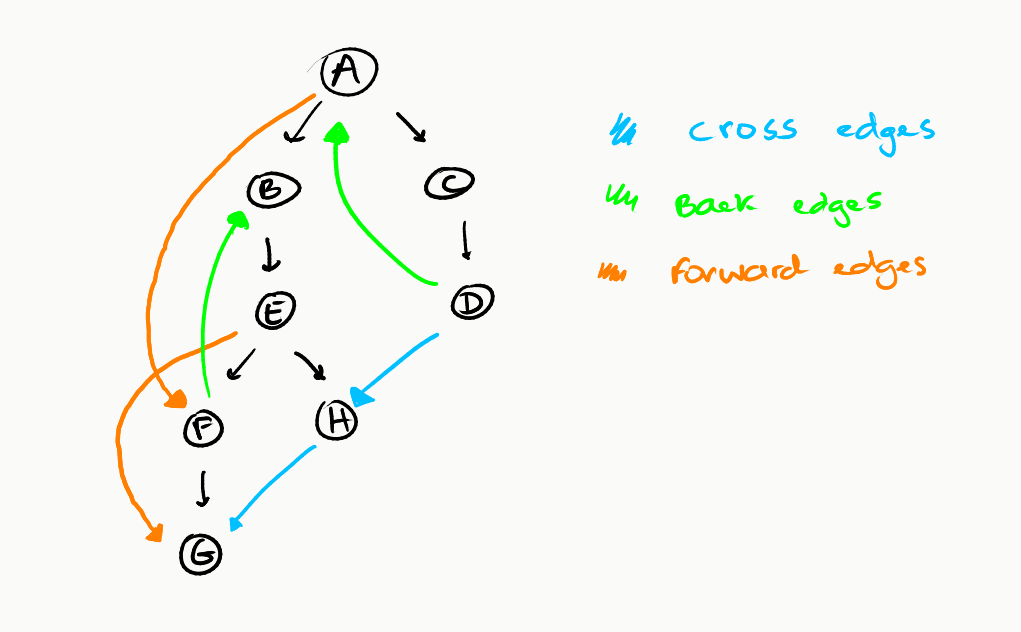 A
B
C
E
D
F
H
G
cross edges
Back edges
forward edges